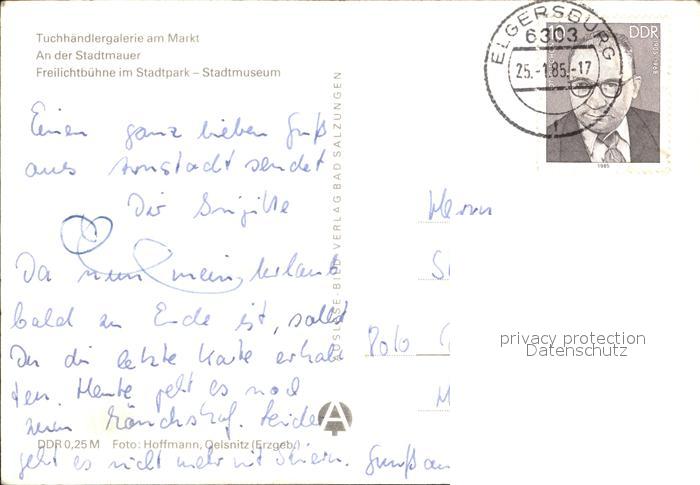 Tuchhändlergalerie am Markt
An der Stadtmauer
Freilichtbühne im Stadtpark – Stadtmuseum
ELGERSBURG
6303
25.-1.85.-17
10
DDR
1985
AUSLESE-BILD-VERLAG BAD SALZUNGEN
Einen ganz lieben Gruß
aus Arnstadt sendet
Dir Brigitte
Da nun mein Urlaub
bald zu Ende ist, sollst
Du die letzte Karte erhal
ten. Heute geht es noch
zum Mönchshof. Leider
geht es nicht mehr mit
Gruß an
Herrn
privacy protection
Datenschutz
A
DDR 0,25 M Foto: Hoffmann, Oelsnitz (Erzgeb.)